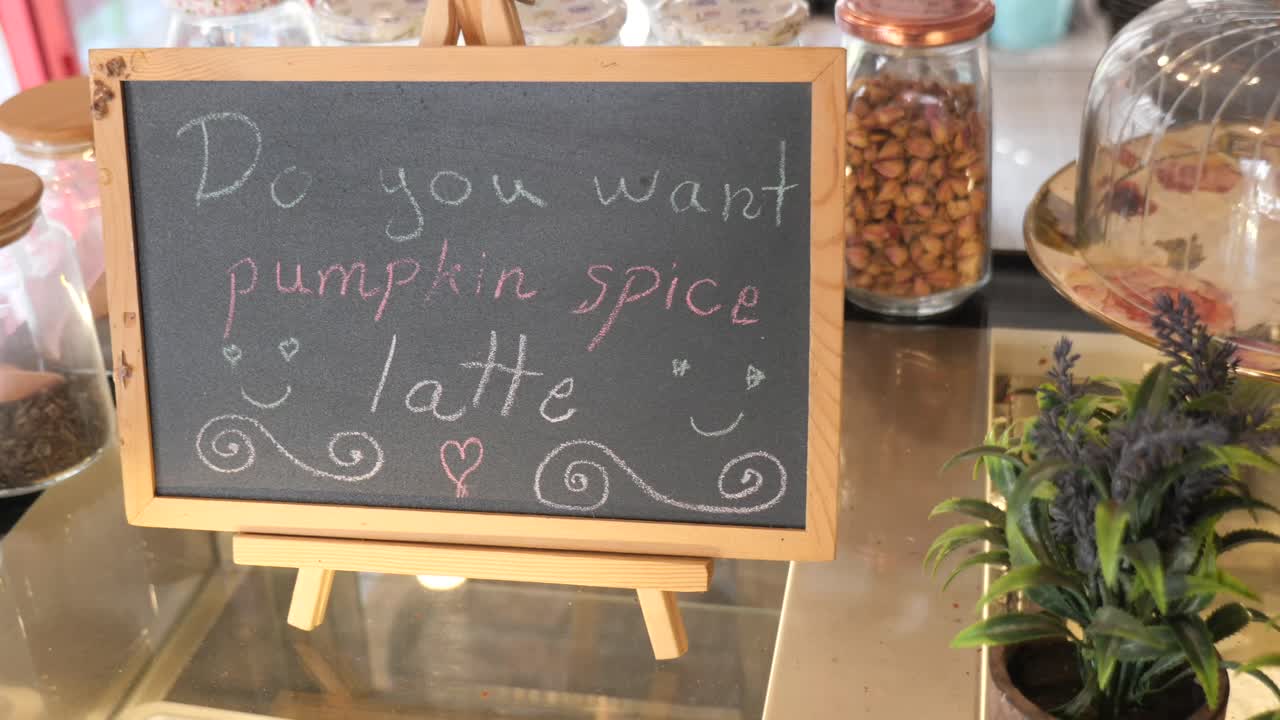 Do you want
pumpkin spice
latte